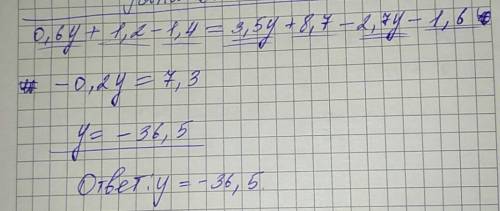 0,6y + 1,2 - 1,4 = 3,5y + 8,7 - 2,7y - 1,6
-0,2y = 7,3
y = -36,5
Ответ: y = -36,5